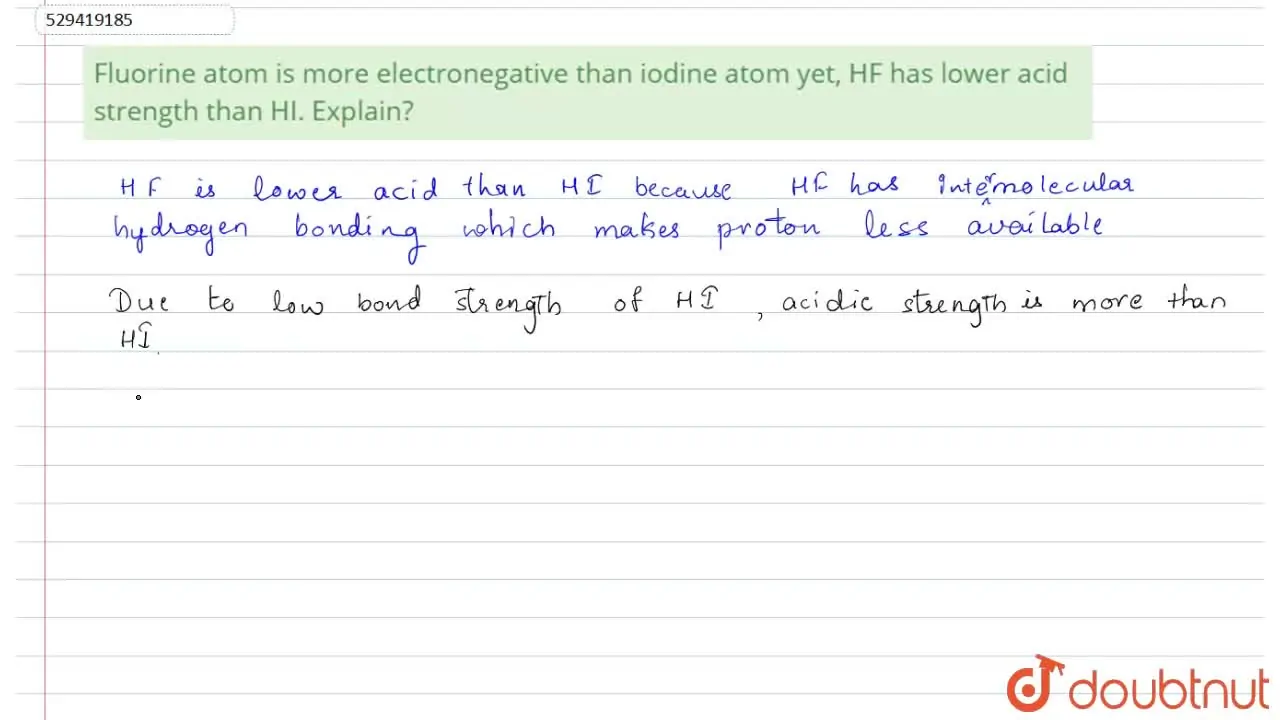 529419185
Fluorine atom is more electronegative than iodine atom yet, HF has lower acid
strength than HI. Explain?
HF is lower acid than HI because HF has intermolecular
hydrogen bonding which makes proton less available
Due to low bond strength of HI, acidic strength is more than
HI.
doubtnut